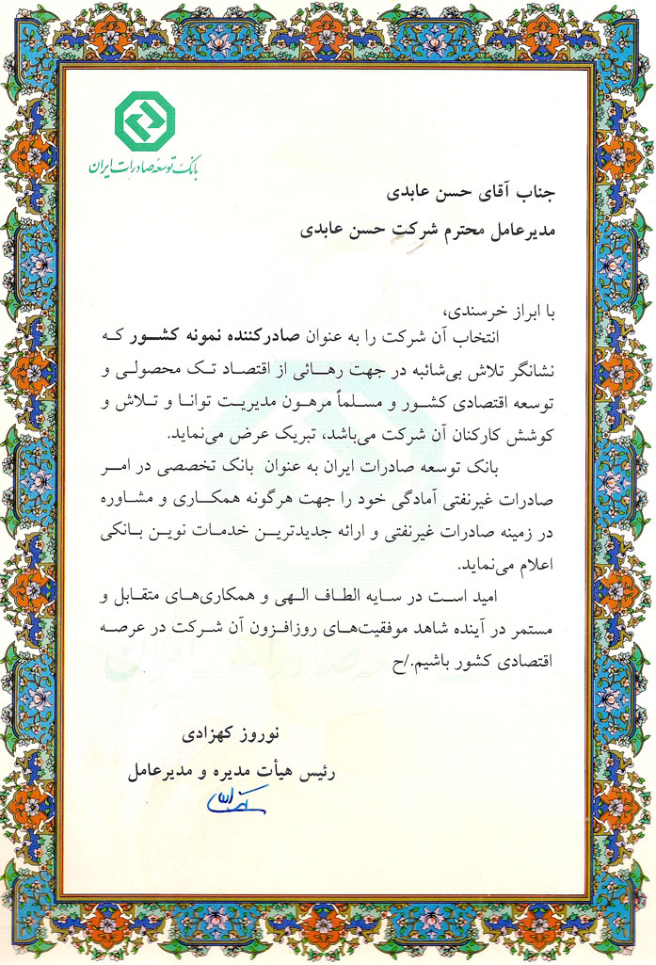 بانک توسعه صادرات ایران
جناب آقای حسن عابدی
مدیرعامل محترم شرکت حسن عابدی
با ابراز خرسندی،
انتخاب آن شرکت را به عنوان صادرکننده نمونه کشـــور کـه
نشانگر تلاش بی‌شائبه در جهت رهـــائی از اقتصـاد تـک محصولـی و
توسعه اقتصادی کشـور و مسـلماً مرهـون مدیریـت توانـا و تـلاش و
کوشش کارکنان آن شرکت می‌باشد، تبریک عرض می‌نماید.
بانک توسعه صادرات ایران به عنوان بانک تخصصی در امـر
صادرات غیرنفتی آمادگی خود را جهت هرگونه همکـاری و مشـاوره
در زمینه صادرات غیرنفتی و ارائه جدیدتریـن خدمـات نویـن بـانکی
اعلام می‌نماید.
امید اسـت در سـایه الطاف الـهی و همکاری‌هـای متقـابل و
مستمر در آینده شاهد موفقیت‌هـای روزافـزون آن شـرکت در عرصـه
اقتصادی کشور باشیم./ح
نوروز کهزادی
رئیس هیأت مدیره و مدیرعامل